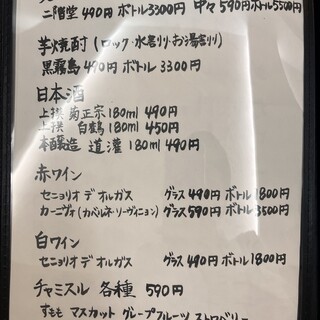 二階堂 490円 ボトル3300円 中々 590円 ボトル5500円
芋焼酎 (ロック・水割り・お湯割り)
黒霧島 490円 ボトル 3300円
日本酒
上撰 菊正宗 180ml 490円
上撰 白鶴 180ml 450円
本醸造 道灌 180ml 490円
赤ワイン
セニョリオ デ オルガス グラス 490円 ボトル 1800円
カーニヴォ (カバルネ・ソーヴィニヨン) グラス 590円 ボトル 3500円
白ワイン
セニョリオ デ オルガス グラス 490円 ボトル 1800円
チャミスル 各種 590円
すもも マスカット グレープフルーツ ストロベリー